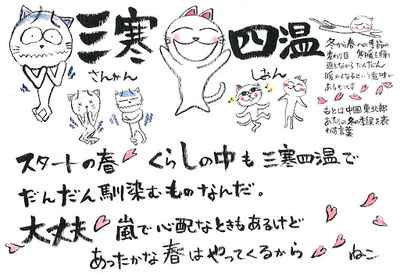 三寒四温
さんかん しおん
冬から春への季節の
変わり目 寒暖を繰り
返しながら だんだん
暖かくなるという意味が
あるそうです
もとは中国東北部
あたりの冬の気候を表
わす言葉
スタートの春 くらしの中も三寒四温で
だんだん馴染むものなんだ。
大丈夫 嵐で心配なときもあるけど
あったかな春はやってくるから ねこ